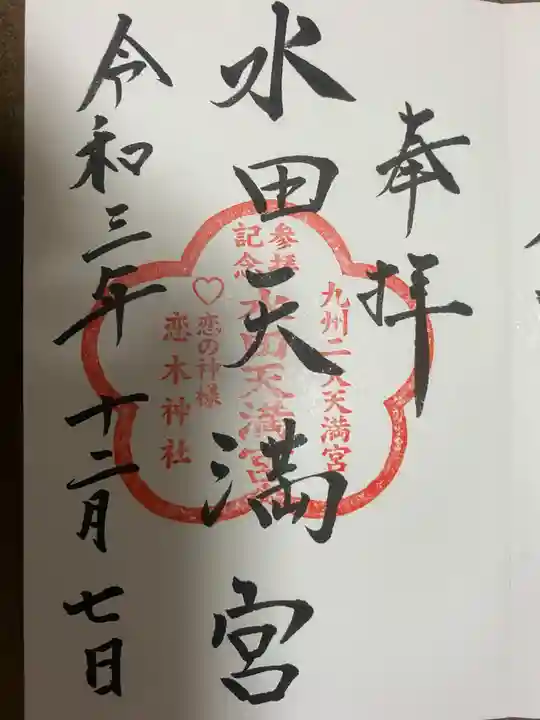 奉拝
水田天満宮
令和三年 十二月 七日
参拝
記念
九州二大天満宮
水田天満宮
♡恋の神様
恋木神社